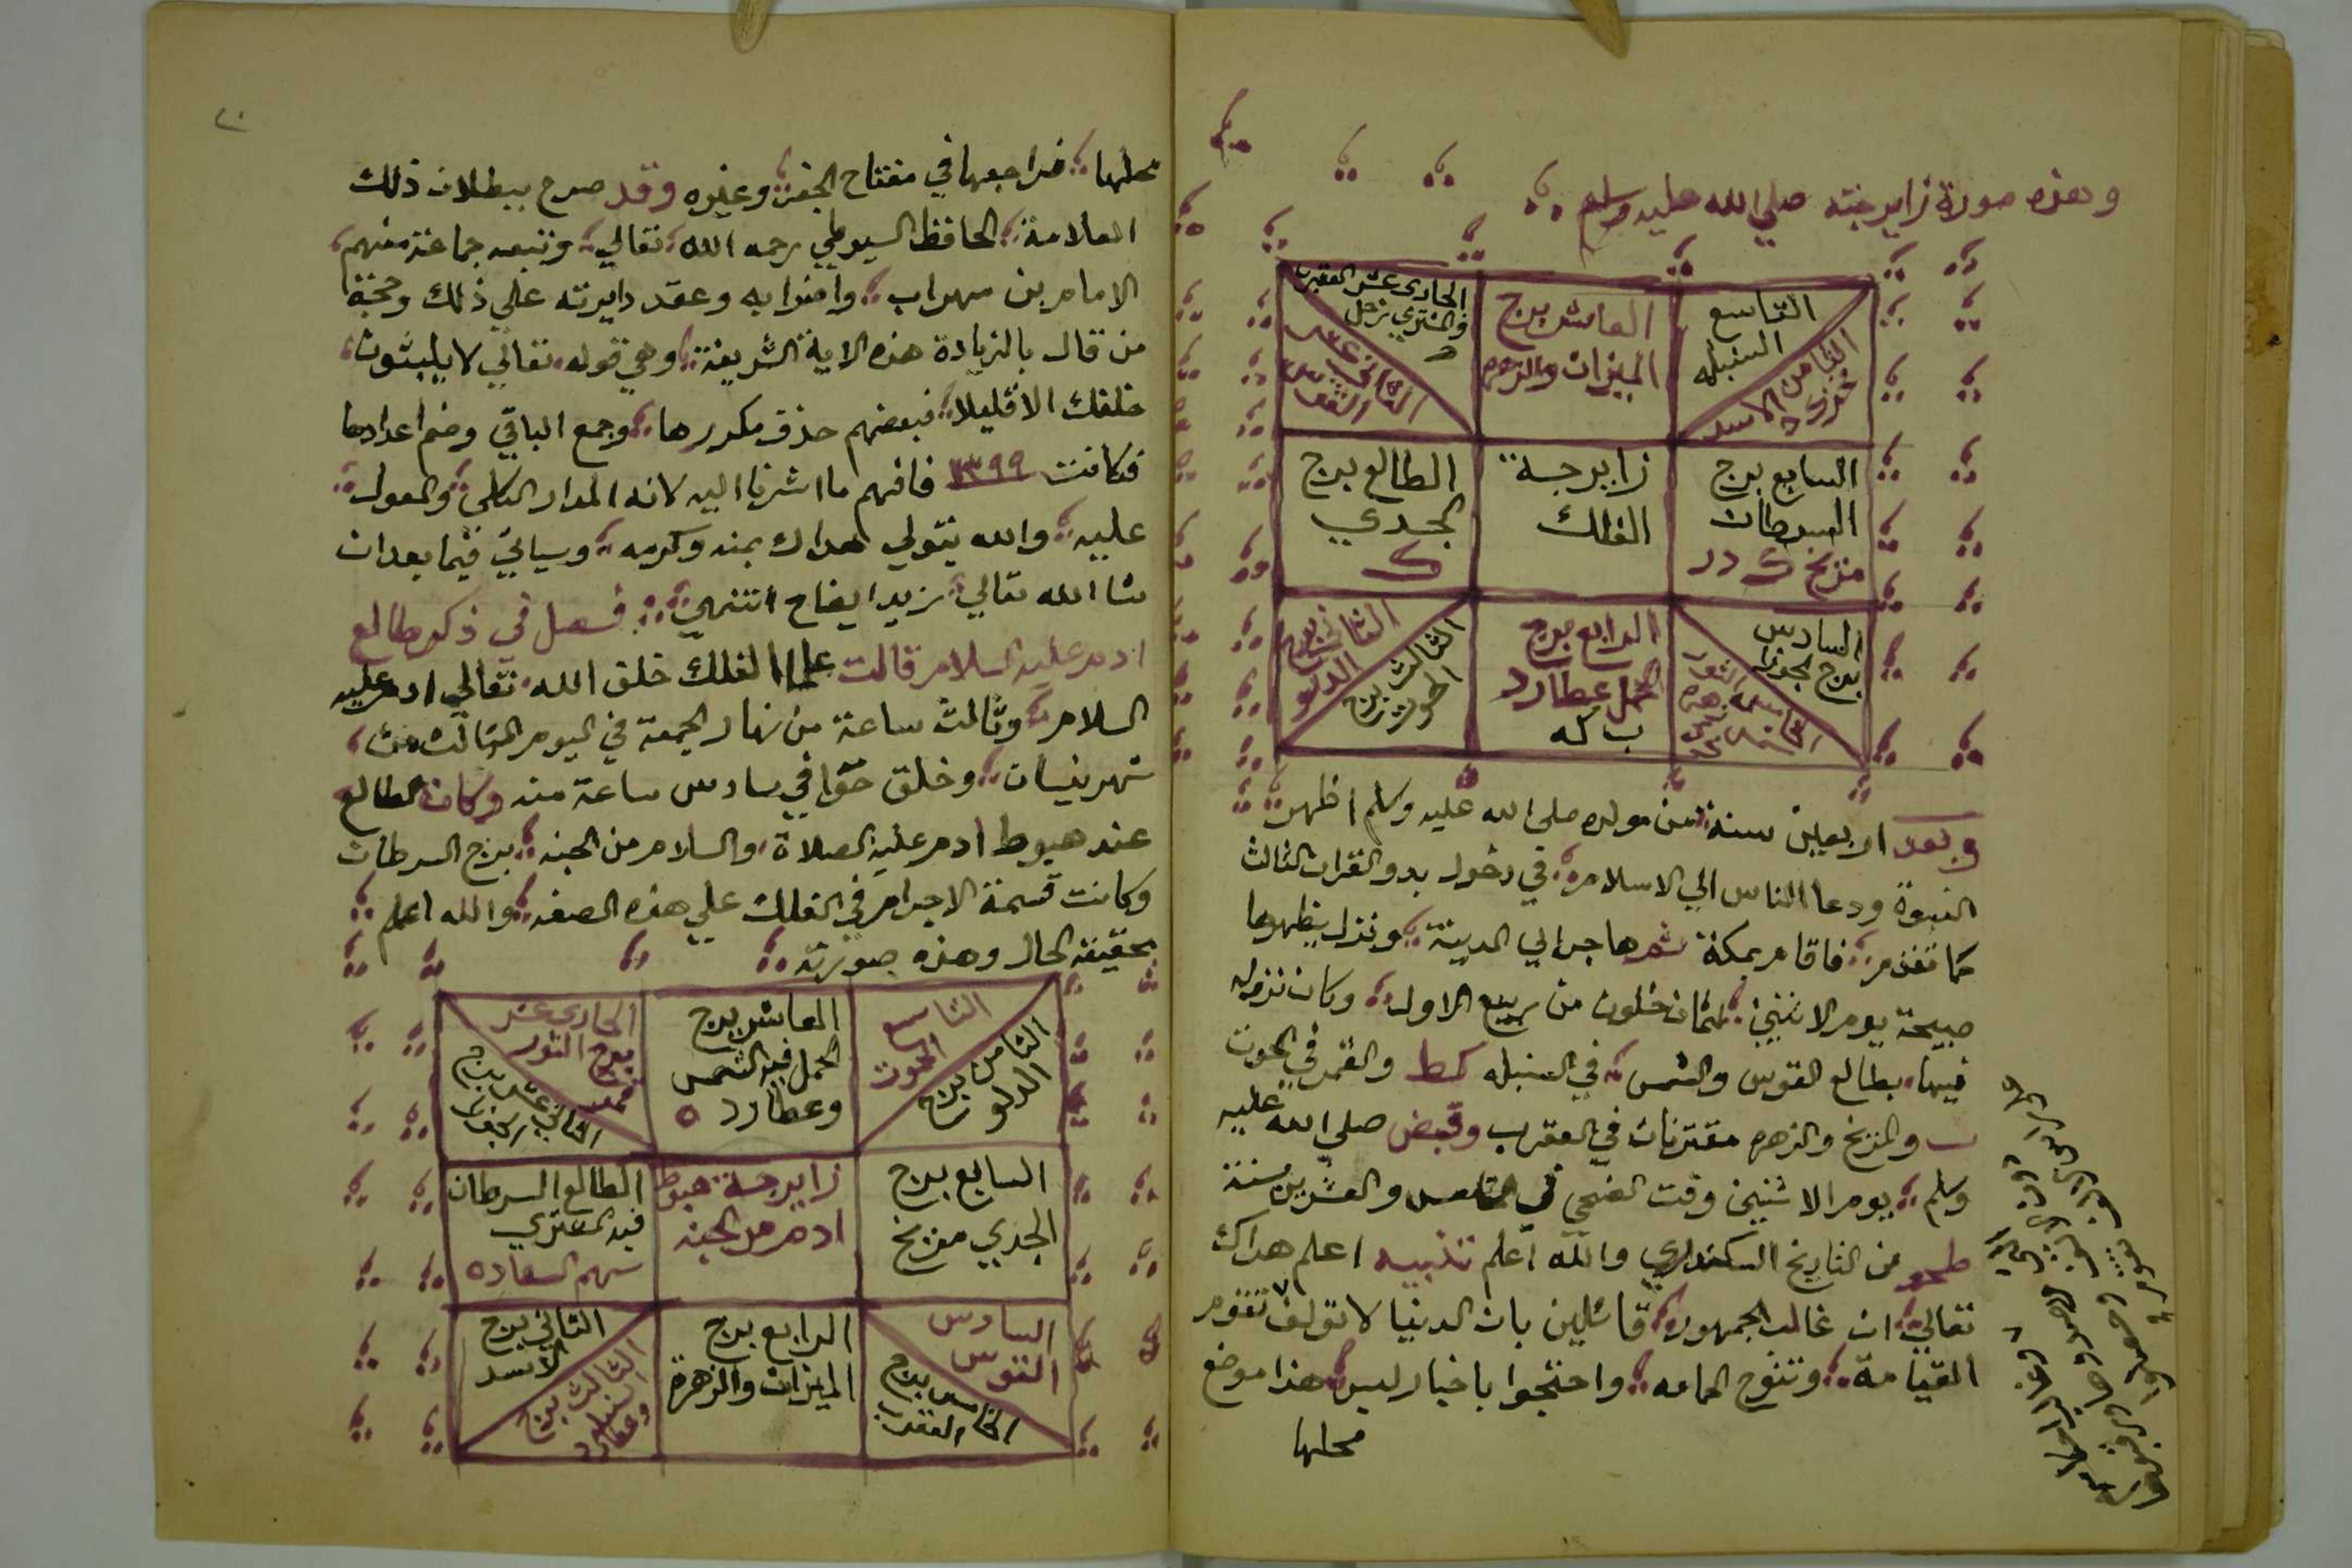 وهذه صورة زايرجته صلي الله عليه وسلم
التاسع
السنبله
الثامن
الاسد
العاشر برج
الميزان والزهره
الحادى عشر العقرب
والمشتري زحل
الثاني عشر
القوس
السابع برج
السرطان
مريخ
زايرجة
الفلك
الطالع برج
الجدي
ك
السادس
برج الجوزا
الخامس
الثور
زهره
شمس
الرابع برج
الحمل عطارد
ب كه
الثاني برج
الدلو
الثالث برج
الحوت
وبعد اربعين سنة من مولده صلى الله عليه وسلم اظهر
النبوة ودعا الناس الي الاسلام في دخول بدو القران الثالث
كما تقدم فاقام بمكة ثم هاجر الي المدينة ونزل بظهرها
صبيحة يوم الاثنين لثمان خلون من ربيع الاول وكان نزوله
فيها بطالع القوس والشمس في السنبله كط والقمر في الحوت
والمريخ والزهره مقترنان في العقرب وقبض صلي الله عليه
وسلم يوم الاثنين وقت الضحي في والعشرين سنة
من التاريخ السكندري والله اعلم تنبيه اعلم هداك
تعالي ان غالب الجمهور قائلين بان الدنيا لا تولف تقوم
القيامة وتنوح الحمامه واحتجوا باخبار ليس هذا موضع
محلها
٢٠
محلها فراجعها في مفتاح الجفر وغيره وقد صرح ببطلان ذلك
العلامة الحافظ السيوطي رحمه الله تعالي وتبعه جماعة منهم
الامام بن سهراب واضرابه وعقد دايرته علي ذلك وحجة
من قال بالزيادة هذه الاية الشريفة وهي قوله تعالي لا يلبثون
خلفك الا قليلا فبعضهم حذف مكررها وجمع الباقي وضم اعدادها
فكانت ١٣٩٩ فافهم ما اشرنا اليه لانه المدار الكلي والمعول
عليه والله يتولي هداك بمنه وكرمه وسياتي فيما بعد ان
شا الله تعالي مزيد ايضاح انتهي فصل في ذكر طالع
ادم عليه السلام قالت علما الفلك خلق الله تعالي ادم عليه
السلام وثالث ساعة من نهار الجمعة في اليوم الثالث من
شهر نيسان وخلق حوا في سادس ساعة منه وكان الطالع
عند هبوط ادم عليه الصلاة والسلام من الجنه برج السرطان
وكانت قسمة الاجرام في الفلك علي هذه الصفه والله اعلم
بحقيقة الحال وهذه صورته
التاسع
الحوت
الثامن برج
الدلو
العاشر برج
الحمل فيه الشمس
وعطارد
الحادى عشر
برج الثور
قمر
الثاني عشر برج
السابع برج
الجدي مريخ
زايرجة هبوط
ادم من الجنه
الطالع السرطان
فيه المشتري
سهم السعاده
السادس
القوس
الخامس برج
العقرب
الرابع برج
الميزان والزهرة
الثاني برج
الاسد
الثالث برج
السنبله
وعطارد